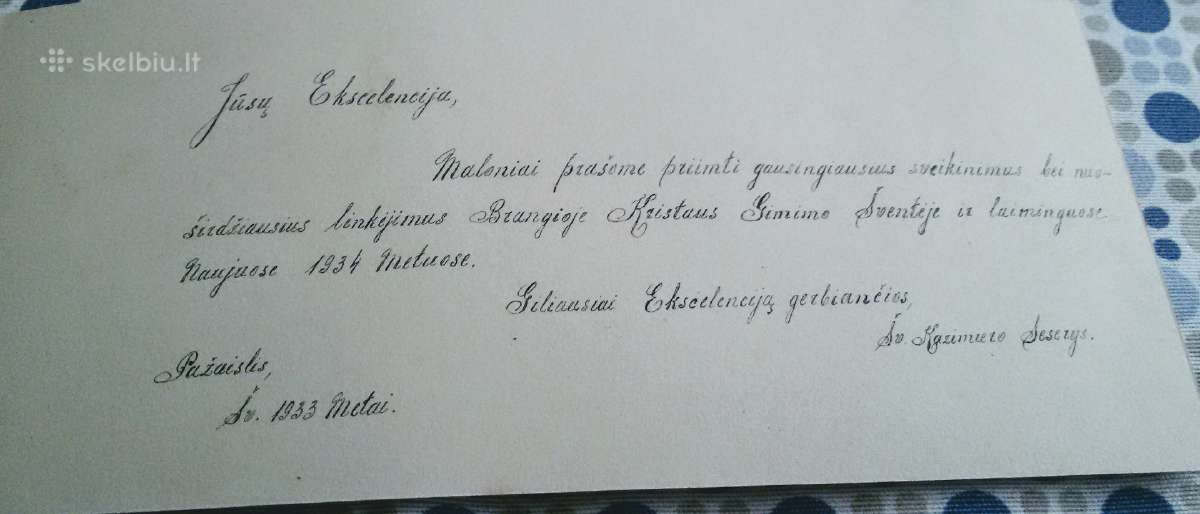 skelbiu.lt
Jūsų Ekscelencija,
Maloniai prašome priimti gausingiausius sveikinimus bei nuo-
širdžiausius linkėjimus Brangioje Kristaus Gimimo Šventėje ir laiminguose
Naujuose 1934 Metuose.
Giliausiai Ekscelenciją gerbiančios,
Šv. Kazimiero Seserys.
Pažaislis,
Šv. 1933 Metai.